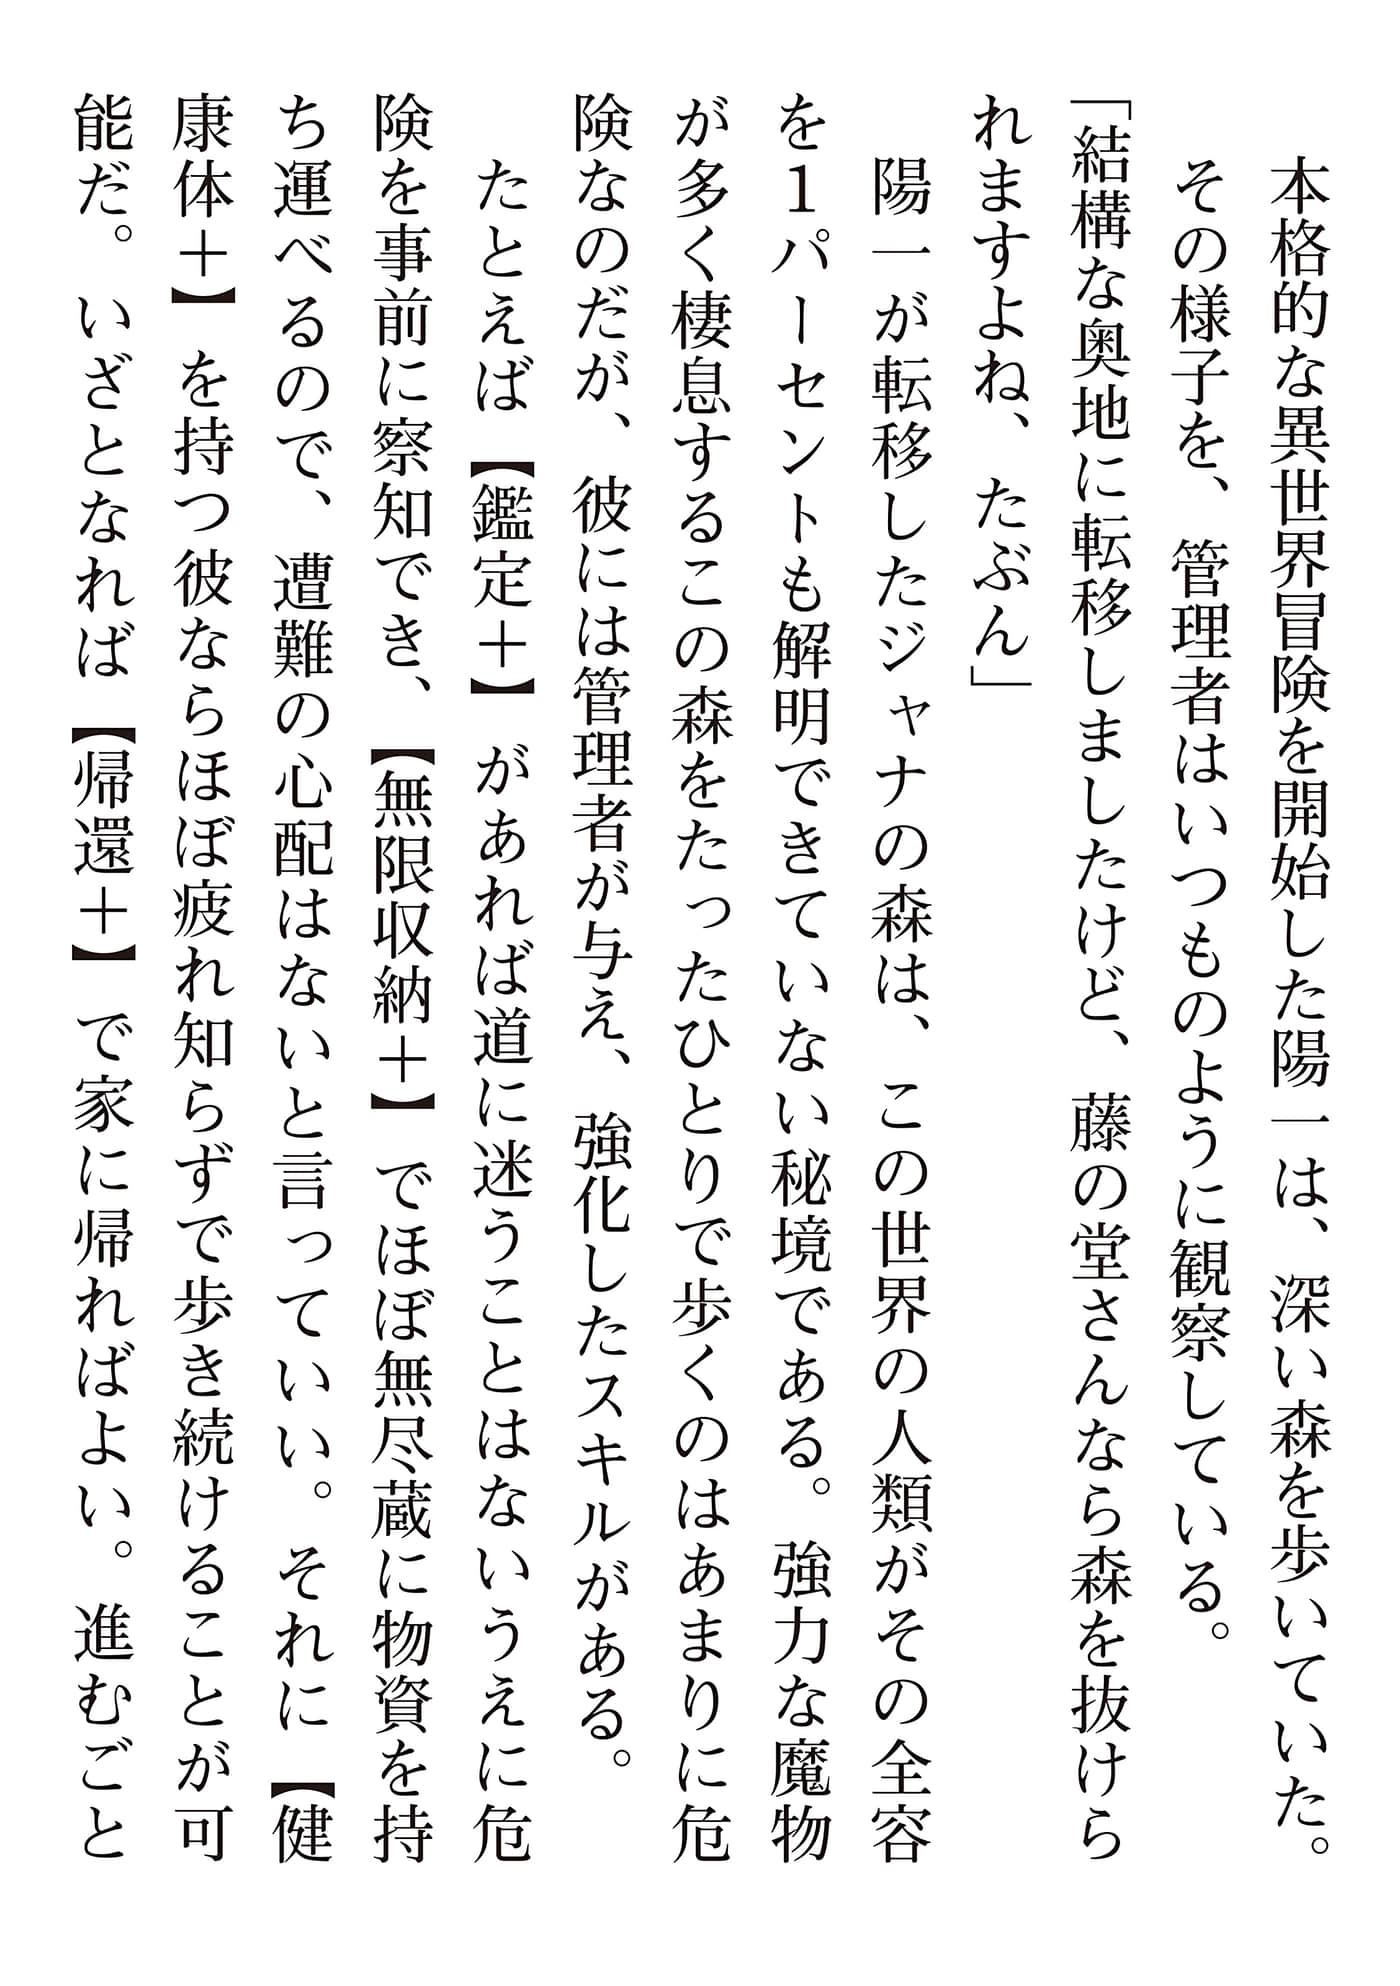 本格的な異世界冒険を開始した陽一は、深い森を歩いていた。
　その様子を、管理者はいつものように観察している。
「結構な奥地に転移しましたけど、藤の堂さんなら森を抜けら
れますよね、たぶん」
　陽一が転移したジャナの森は、この世界の人類がその全容
を１パーセントも解明できていない秘境である。強力な魔物
が多く棲息するこの森をたったひとりで歩くのはあまりに危
険なのだが、彼には管理者が与え、強化したスキルがある。
　たとえば【鑑定＋】があれば道に迷うことはないうえに危
険を事前に察知でき、【無限収納＋】でほぼ無尽蔵に物資を持
ち運べるので、遭難の心配はないと言っていい。それに【健
康体＋】を持つ彼ならほぼ疲れ知らずで歩き続けることが可
能だ。いざとなれば【帰還＋】で家に帰ればよい。進むごと